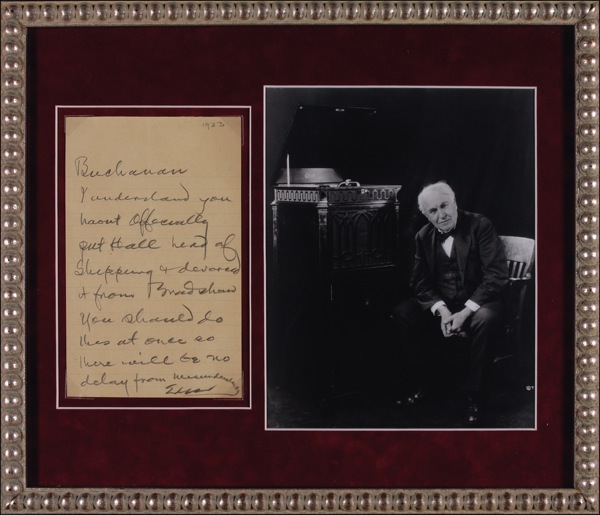 1923
Buchanan
I understand you
havnt Offecially
put Hall head of
Shipping & devorced
it from Bradshaw
You should do
this at once so
there will be no
delay from misunderstandg
Edison